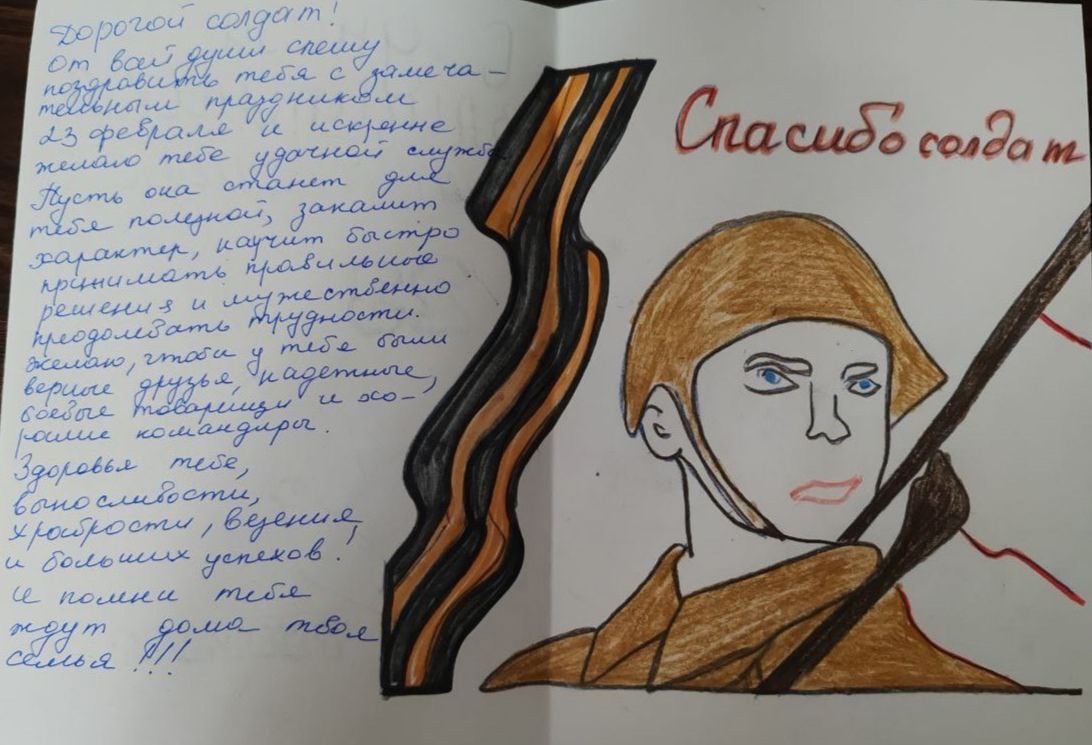 Дорогой солдат!
От всей души спешу
поздравить тебя с замеча-
тельным праздником
23 февраля и искренне
желаю тебе удачной службы
Пусть она станет для
тебя полезной, закалит
характер, научит быстро
принимать правильные
решения и мужественно
преодолевать трудности.
Желаю, чтобы у тебя были
верные друзья, надежные,
боевые товарищи и хо-
рошие командиры.
Здоровья тебе,
выносливости,
храбрости, везения,
и больших успехов!
И помни тебя
ждут дома твоя
семья!!!
Спасибо солдат